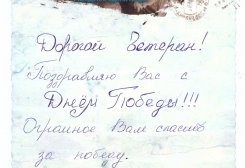 Дорогой Ветеран!
Поздравляю Вас с
Днём Победы!!!
Огромное Вам спасибо
за победу.